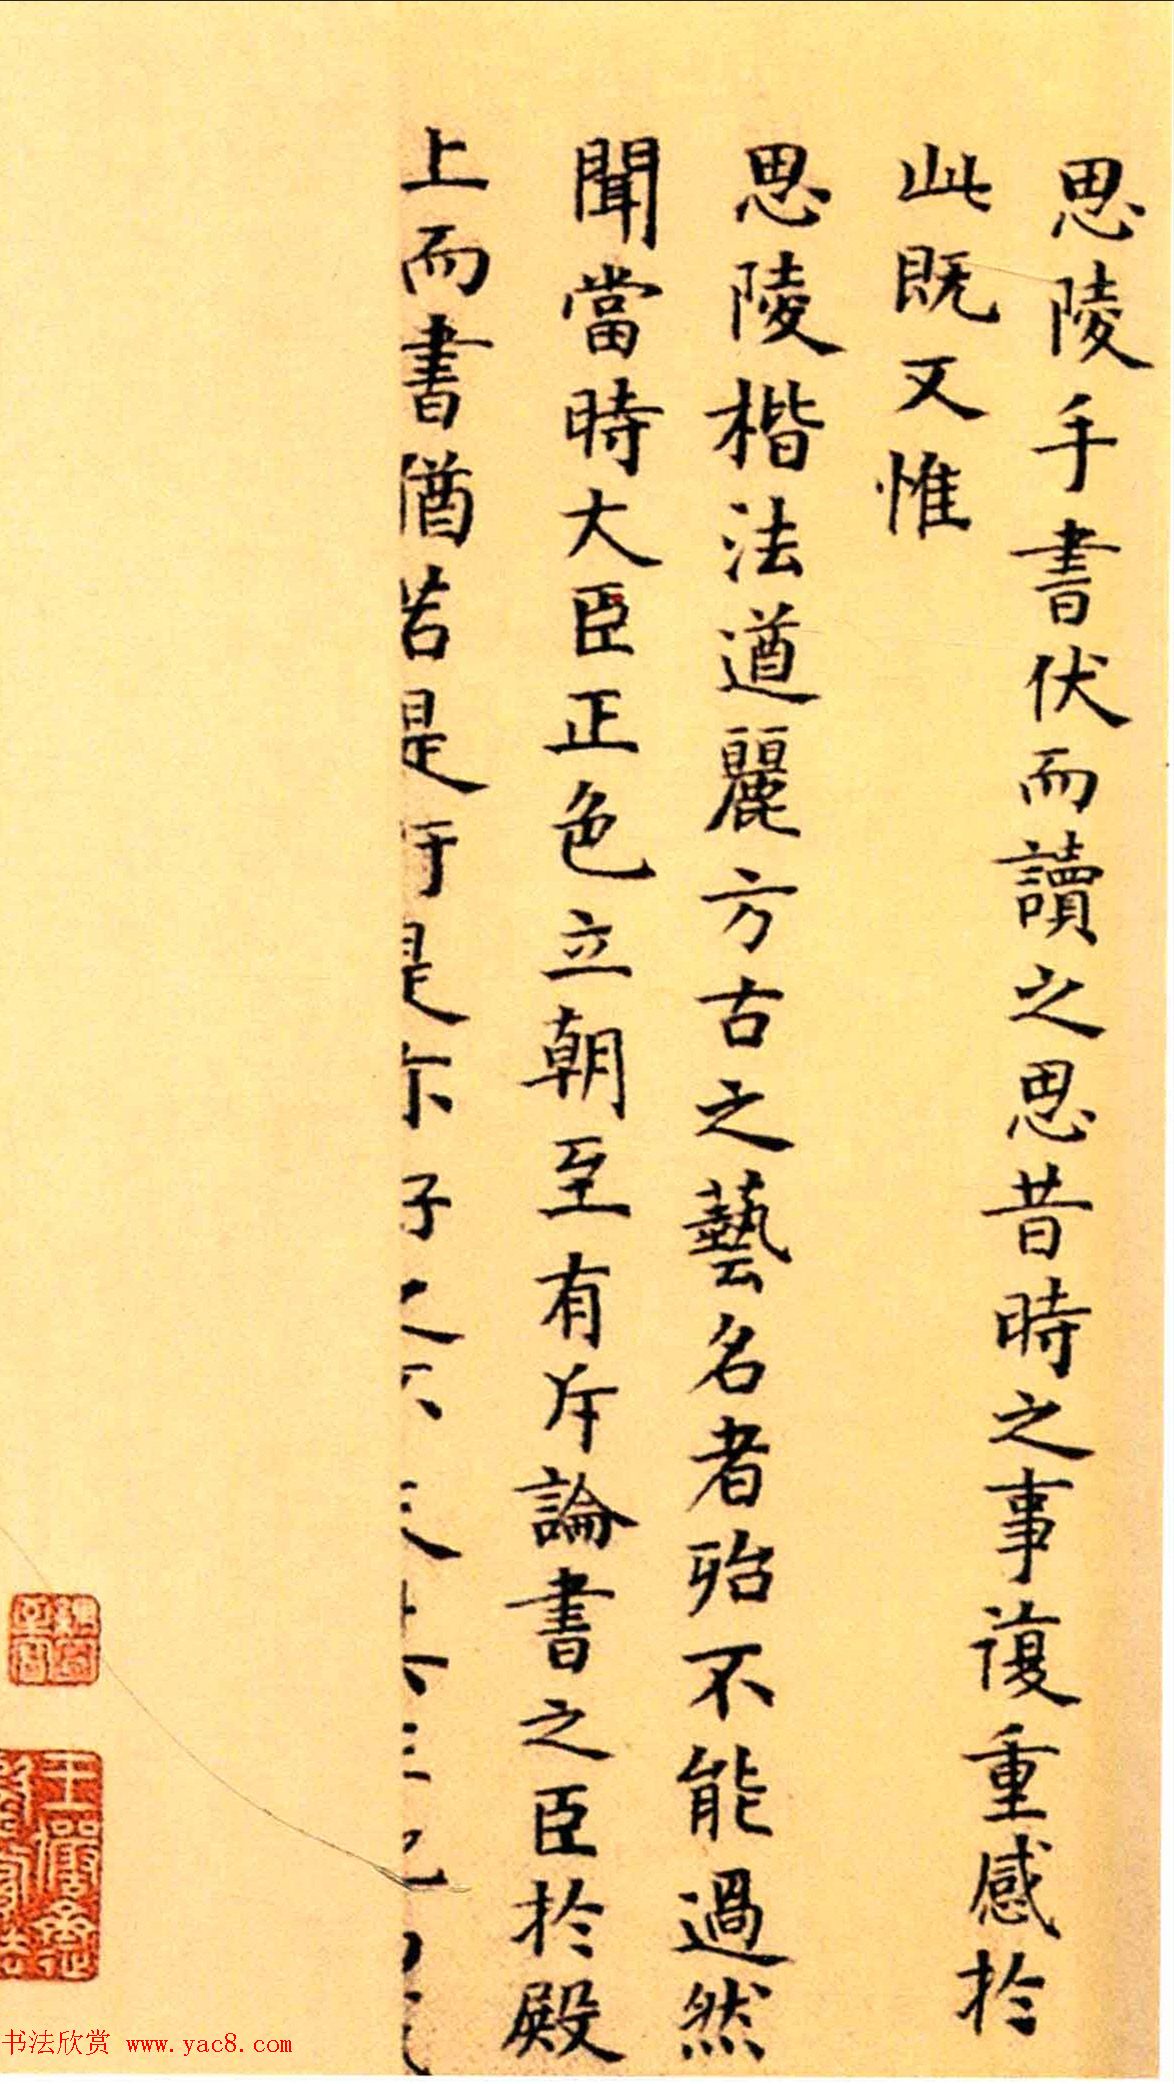 思陵手書伏而讀之思昔時之事復重感於
此既又惟
思陵楷法遒麗方古之藝名者殆不能過然
聞當時大臣正色立朝至有斥論書之臣於殿
上而書猶若是于是
书法欣赏 www.yac8.com